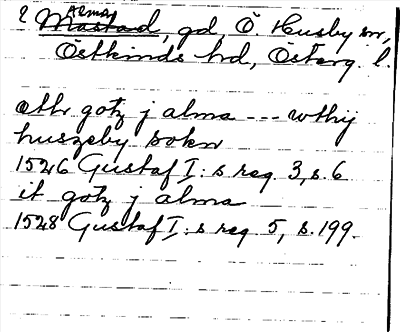 Alma
2 Mastad, gd, Ö. Husby sn,
Östkinds hd, Österg. l.
ett gotz j alma --- wthj
huszeby sokn
1526 Gustaf I:s reg. 3, s. 6
it gotz j alma
1528 Gustaf I:s reg 5, s. 199.